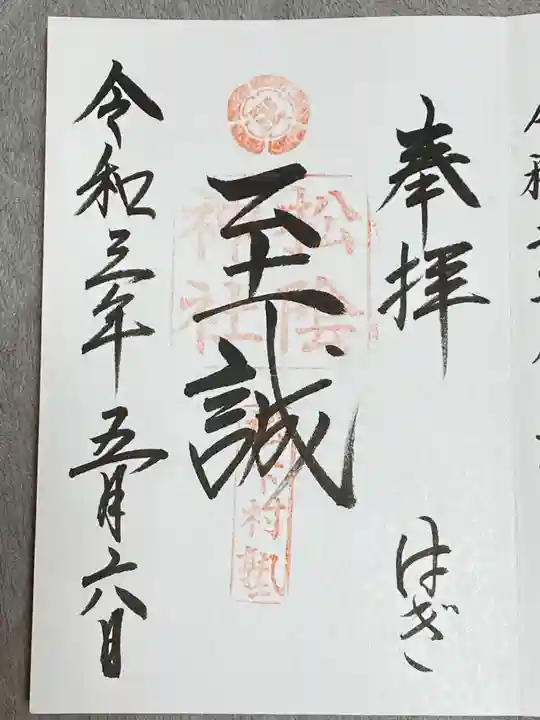 奉拝
はぎ
松陰
神社
至誠
松下村塾
令和三年五月六日